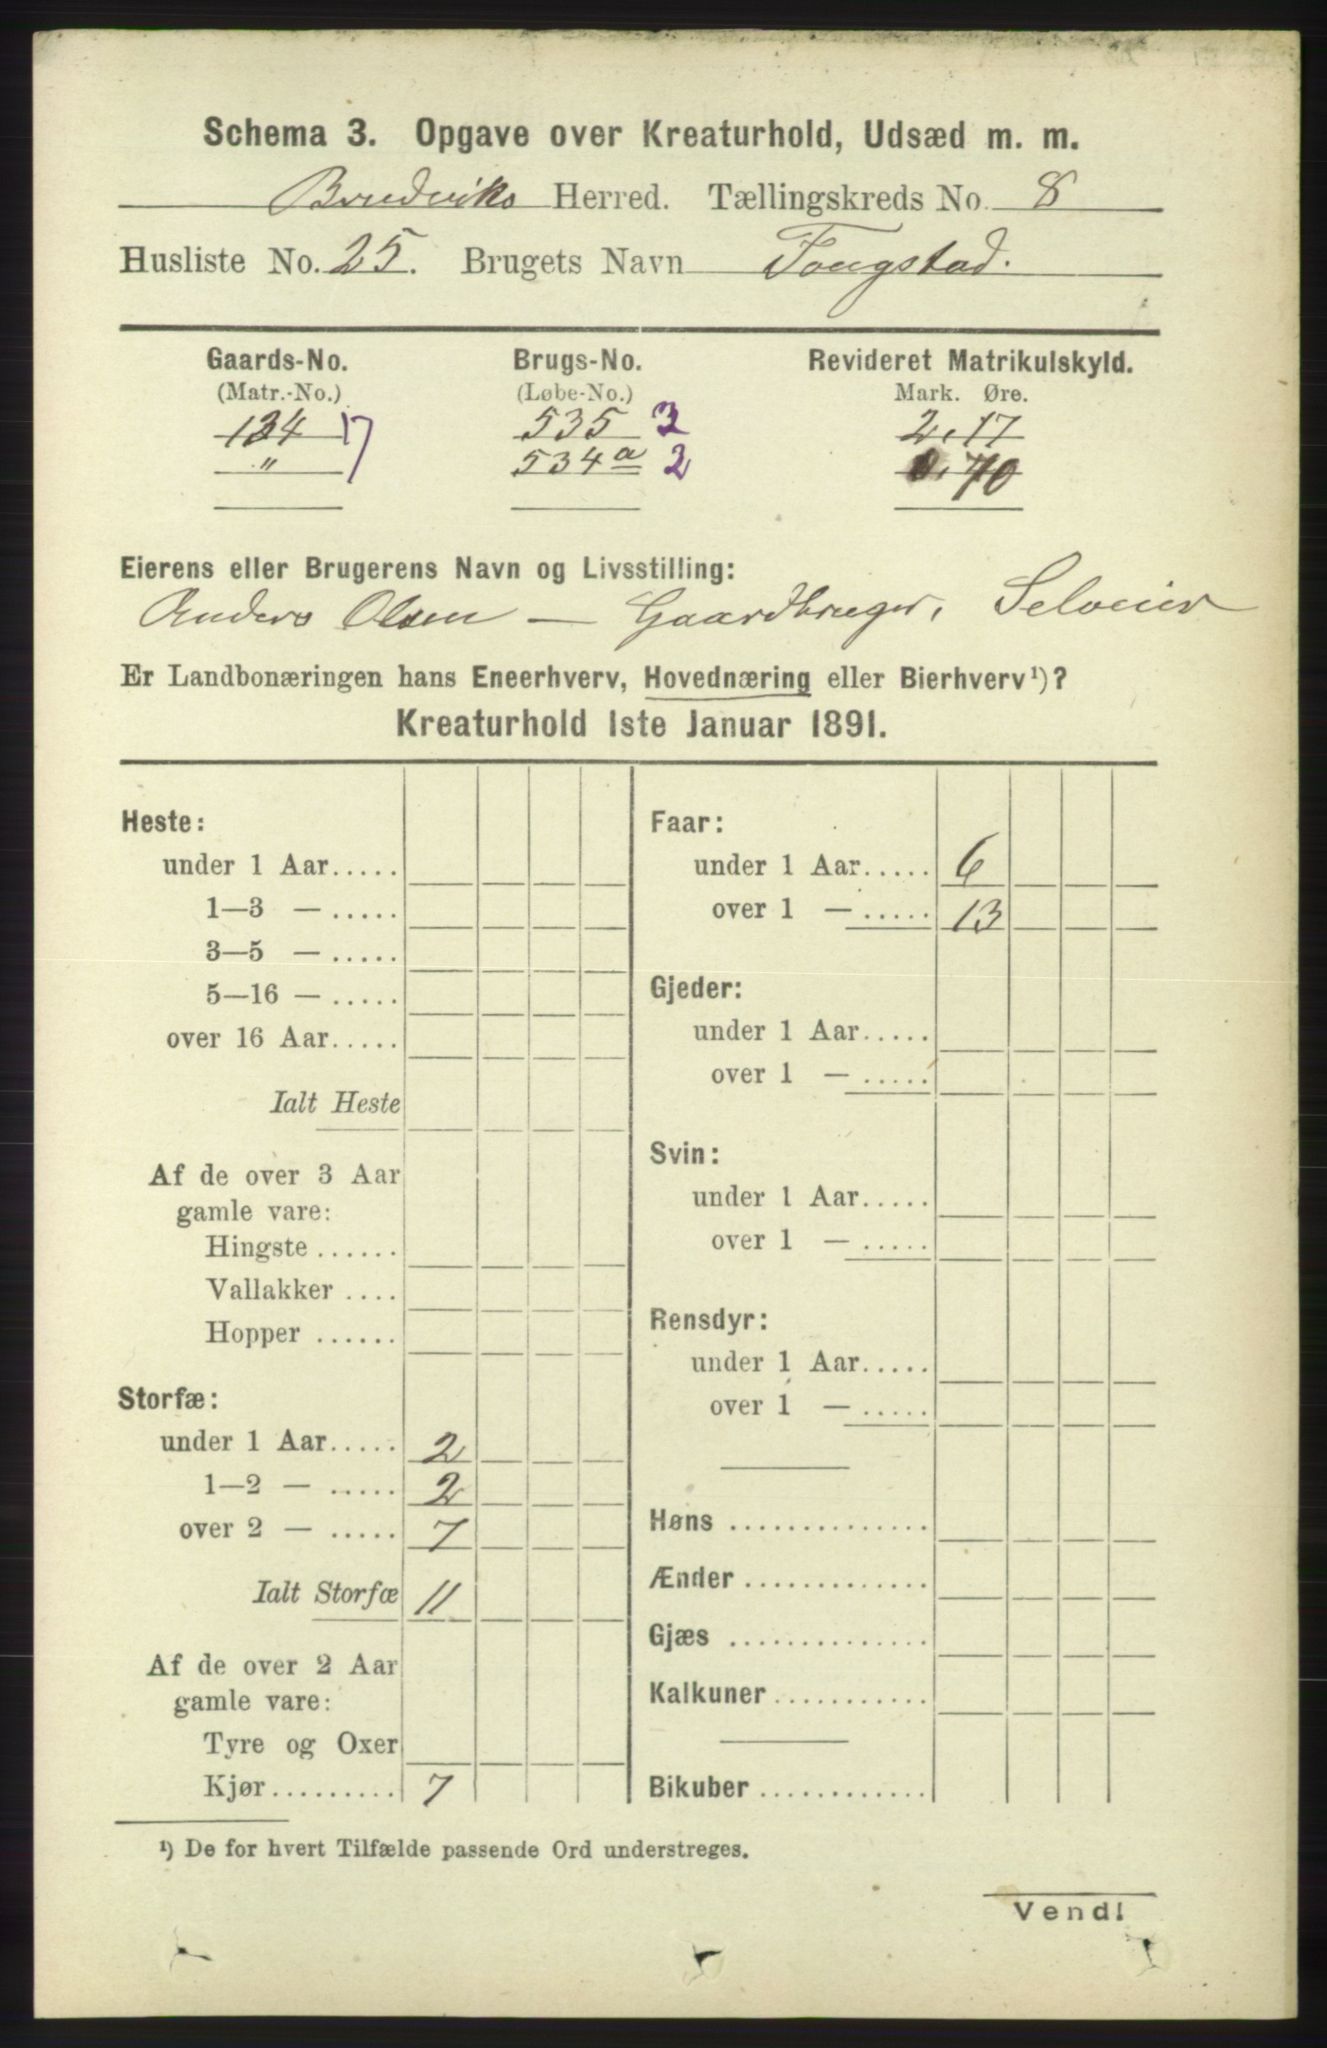 Schema 3. Opgave over Kreaturhold, Udsæd m. m.
Brudviks Herred. Tællingskreds No. 8
Husliste No. 25. Brugets Navn Tougstad.
Gaards-No. Brugs-No. Revideret Matrikulskyld.
(Matr.-No.) (Løbe-No.) Mark. Øre.
134 17 535 3 2.17
" 534 a 2 0.70
Eierens eller Brugerens Navn og Livsstilling:
Anders Olsen — Gaardbruger, Selveier
Er Landbonæringen hans Eneerhverv, Hovednæring eller Bierhverv¹)?
Kreaturhold 1ste Januar 1891.
Heste:
under 1 Aar.....
1—3 — .....
3—5 — .....
5—16 — .....
over 16 Aar.....
Ialt Heste
Af de over 3 Aar
gamle vare:
Hingste ......
Vallakker ....
Hopper ......
Storfæ:
under 1 Aar..... 2
1—2 — ..... 2
over 2 — ..... 7
Ialt Storfæ 11
Af de over 2 Aar
gamle vare:
Tyre og Oxer
Kjør......... 7
Faar:
under 1 Aar..... 6
over 1 — ..... 13
Gjeder:
under 1 Aar.....
over 1 — .....
Svin:
under 1 Aar.....
over 1 — .....
Rensdyr:
under 1 Aar.....
over 1 — .....
Høns ..............
Ænder .............
Gjæs ..............
Kalkuner...........
Bikuber ............
¹) De for hvert Tilfælde passende Ord understreges.
Vend!